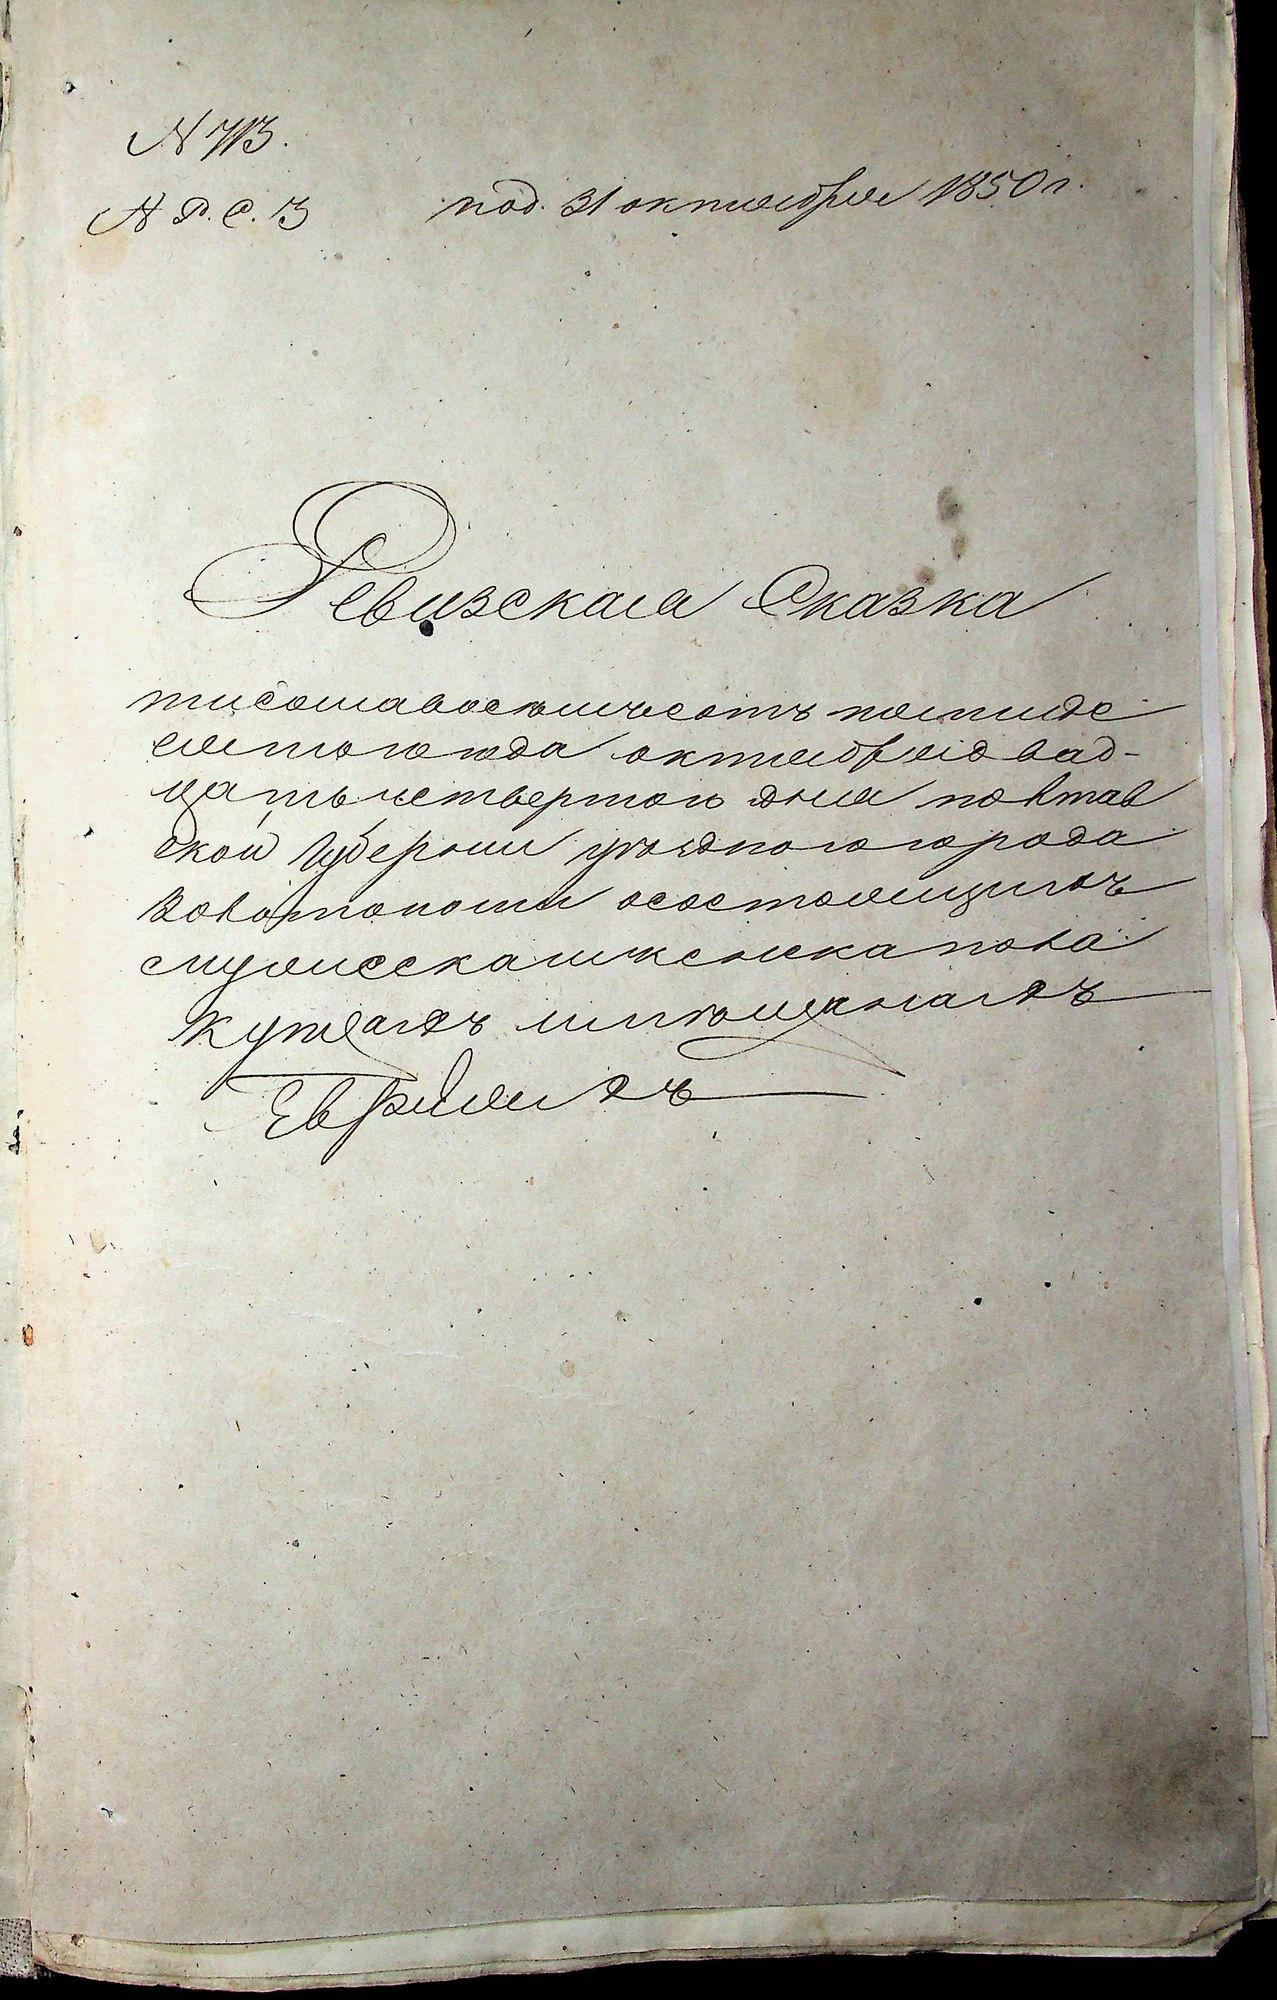 N 713.
N Р. С. 3 под. 31 октября 1850 г.
Ревизская Сказка
тисеча восемьсотъ пятиде
сятого года октября двад-
цать четвертого дня полтав
ской губернии уездного города
золотоноши осостоящихъ
мужеска и женска пола
купцахъ и мещанахъ
Евреяхъ